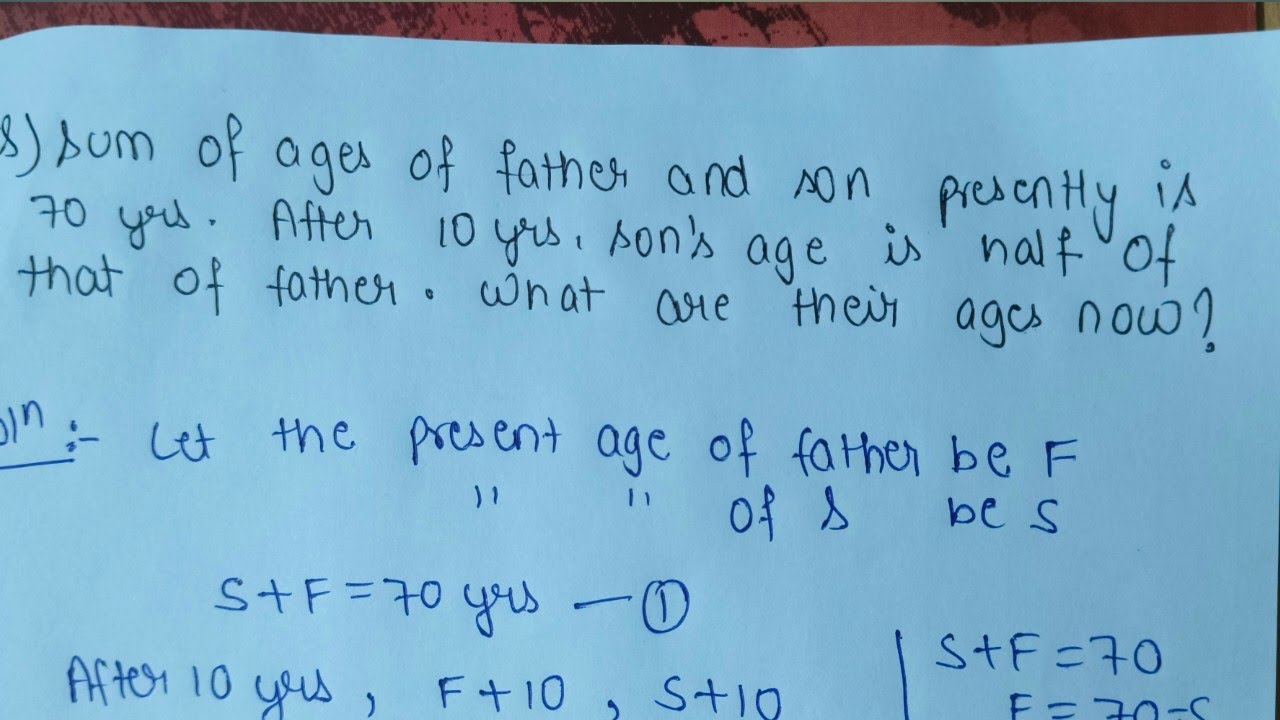 8) Sum of ages of father and son presently is
70 yrs. After 10 yrs, son's age is half of
that of father. What are their ages now?
oln :- Let the present age of father be F
" " of S be S
S+F=70 yrs — ①
After 10 yrs, F+10, S+10
S+F=70
F=70-S